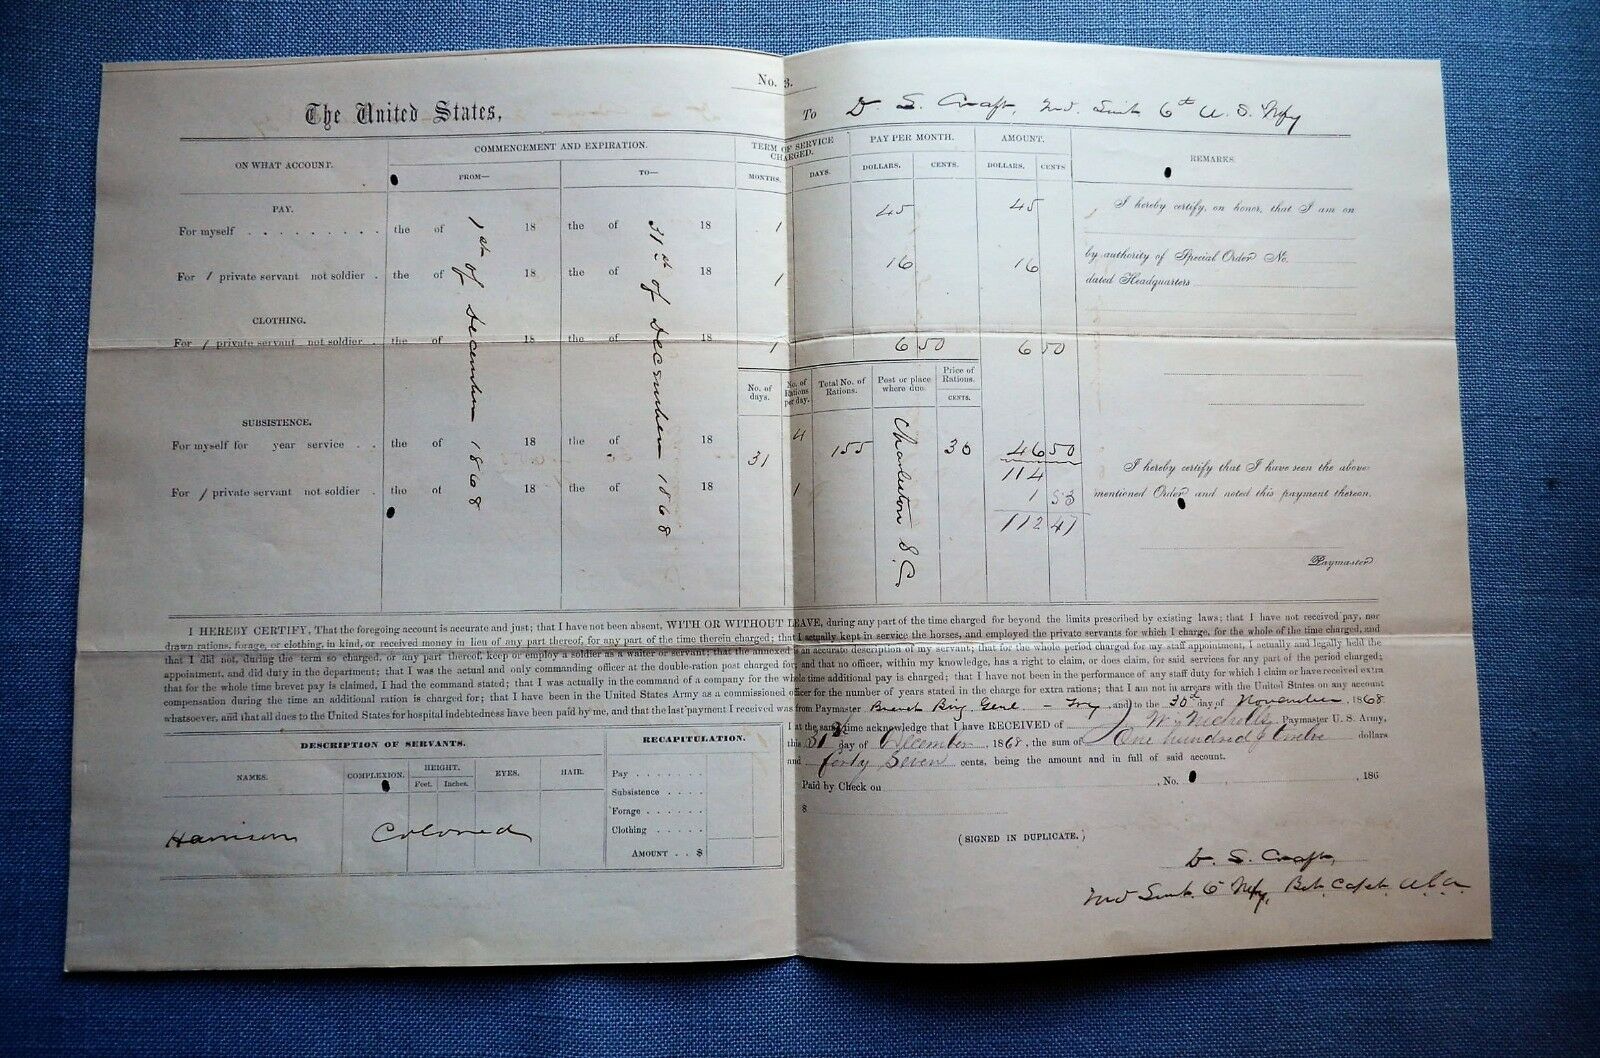 No. 3.
The United States, To D S. Craft, 2nd. Lieut 6th U. S. Infy
ON WHAT ACCOUNT.
COMMENCEMENT AND EXPIRATION.
FROM—
TO—
TERM OF SERVICE CHARGED.
MONTHS.
DAYS.
PAY PER MONTH.
DOLLARS.
CENTS.
AMOUNT.
DOLLARS.
CENTS
REMARKS.
PAY.
For myself . . . . . . . . . the of 18 the of 18 1 45 45
For 1 private servant not soldier . the of 18 the of 18 1 16 16
CLOTHING.
For 1 private servant not soldier . the of 18 the of 18 1 6 50 6 50
1st of December 1868
31st of December 1868
No. of days.
No. of Rations per day.
Total No. of Rations.
Post or place where due.
Price of Rations.
CENTS.
SUBSISTENCE.
For myself for year service . . the of 18 the of 18 31 4 155 Charleston S. C. 30 46 50
For 1 private servant not soldier . the of 18 the of 18 1
114
1 53
112 41
I hereby certify, on honor, that I am on
by authority of Special Order No.
dated Headquarters
I hereby certify that I have seen the above-
mentioned Order and noted this payment thereon.
Paymaster
I HEREBY CERTIFY, That the foregoing account is accurate and just; that I have not been absent, WITH OR WITHOUT LEAVE, during any part of the time charged for beyond the limits prescribed by existing laws; that I have not received pay, nor
drawn rations, forage, or clothing, in kind, or received money in lieu of any part thereof, for any part of the time therein charged; that I actually kept in service the horses, and employed the private servants for which I charge, for the whole of the time charged, and
that I did not, during the term so charged, or any part thereof, keep or employ a soldier as a waiter or servant; that the annexed is an accurate description of my servant; that for the whole period charged for my staff appointment, I actually and legally held the
appointment, and did duty in the department; that I was the actual and only commanding officer at the double-ration post charged for; and that no officer, within my knowledge, has a right to claim, or does claim, for said services for any part of the period charged;
that for the whole time brevet pay is claimed, I had the command stated; that I was actually in the command of a company for the whole time additional pay is charged; that I have not been in the performance of any staff duty for which I claim or have received extra
compensation during the time an additional ration is charged for; that I have been in the United States Army as a commissioned officer for the number of years stated in the charge for extra rations; that I am not in arrears with the United States on any account
whatsoever, and that all dues to the United States for hospital indebtedness have been paid by me, and that the last payment I received was from Paymaster Brig. Genl and to the 30th day of November 1868
I at the same time acknowledge that I have RECEIVED of Paymaster U. S. Army,
this 31 day of December 1868, the sum of One hundred & twelve dollars
and forty Seven cents, being the amount and in full of said account.
Paid by Check on , No. , 186
$
(SIGNED IN DUPLICATE.)
D. S. Craft,
2nd Lieut. 6 Infy, Bvt. Capt. U.S.A.
DESCRIPTION OF SERVANTS.
NAMES.
COMPLEXION.
HEIGHT.
Feet.
Inches.
EYES.
HAIR.
Harrison Colored
RECAPITULATION.
Pay . . . . . . .
Subsistence . . . .
Forage . . . . .
Clothing . . . . .
AMOUNT . . $